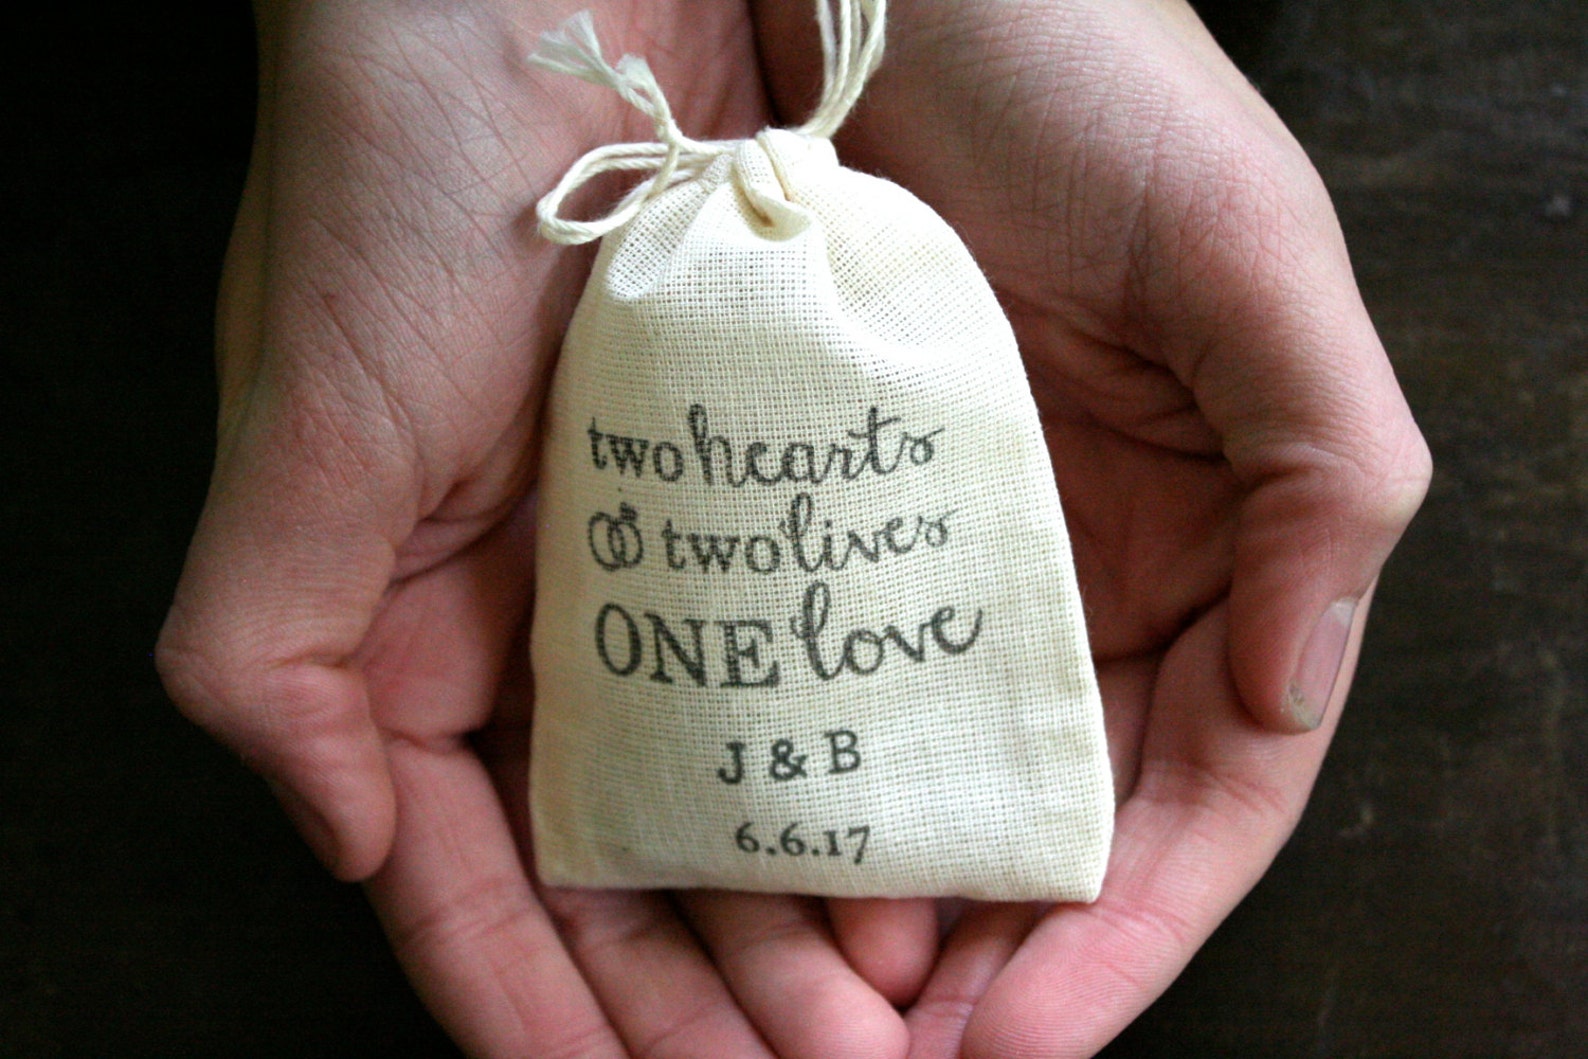 two hearts
two lives
ONE love
J & B
6.6.17